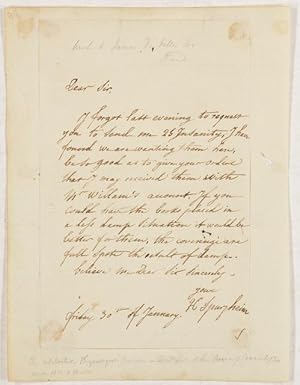 Dear Sir,
I forgot last evening to request
you to send me 25 Insanity, I have
found we are wanting them here,
be so good as to give your orders
that I may received them with
Mr William's account. If you
could have the books placed in
a less damp situation it would be
better for them, the coverings are
full spots the result of damp.
believe me Dear Sir sincerely
your
friday 30th of January. H Spurzheim